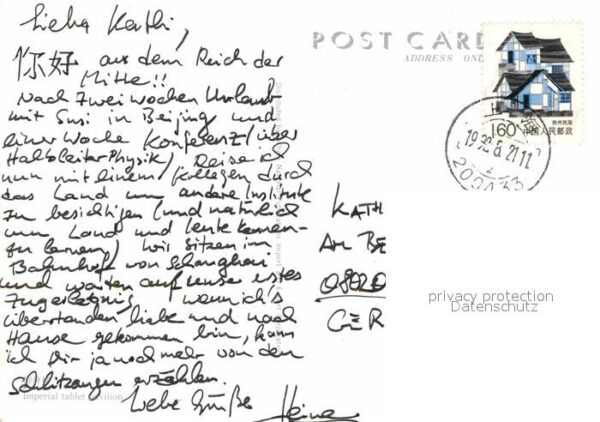 Liebe Kathi,
你好 aus dem Reich der
Mitte!!
Nach zwei Wochen Urlaub
mit Susi in Beijing und
einer Woche Konferenz (über
Halbleiterphysik) reise ich
nun mit einem Kollegen durch
das Land um andere Institute
zu besichtigen (und natürlich
um Land und Leute kennen-
zulernen) wir sitzen im
Bahnhof von Shanghai
und warten auf unser erstes
Zugerlebnis, wenn ich's
überstanden habe und nach
Hause gekommen bin, kann
ich Dir ja noch mehr von den
Schlitzaugen erzählen.
Liebe Grüße
Imperial tablet pavilion
POST CARD
ADDRESS ONL
160 中国人民邮政
贵州民居
1992.8.21.11
KATH
AM BE
GER
privacy protection
Datenschutz